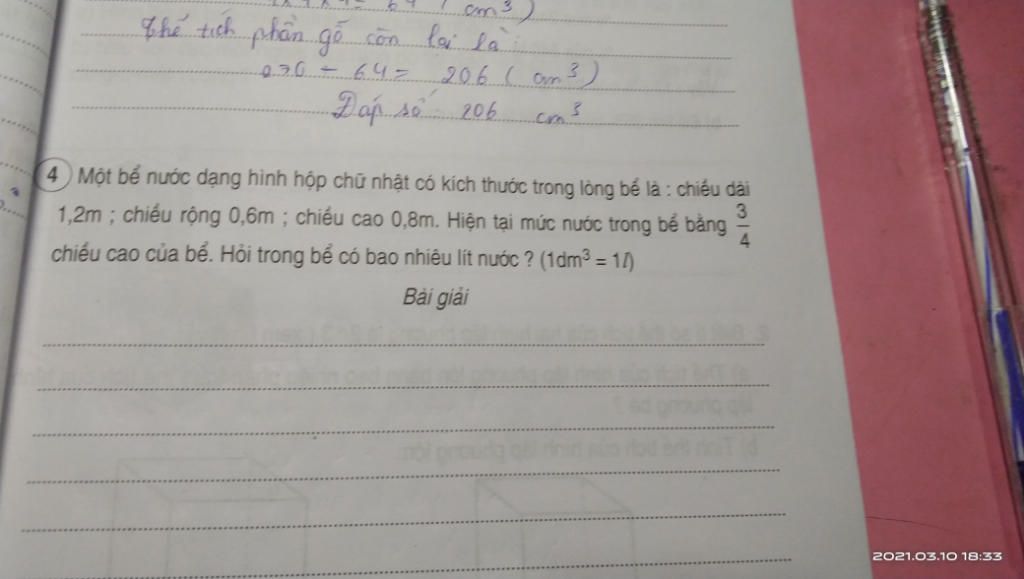 = 64 ( cm³ )
Thể tích phần gỗ còn lại là :
270 - 64 = 206 ( cm³ )
Đáp số 206 cm³
4 Một bể nước dạng hình hộp chữ nhật có kích thước trong lòng bể là : chiều dài
1,2m ; chiều rộng 0,6m ; chiều cao 0,8m. Hiện tại mức nước trong bể bằng 3/4
chiều cao của bể. Hỏi trong bể có bao nhiêu lít nước ? (1dm³ = 1l)
Bài giải
2021.03.10 18:33